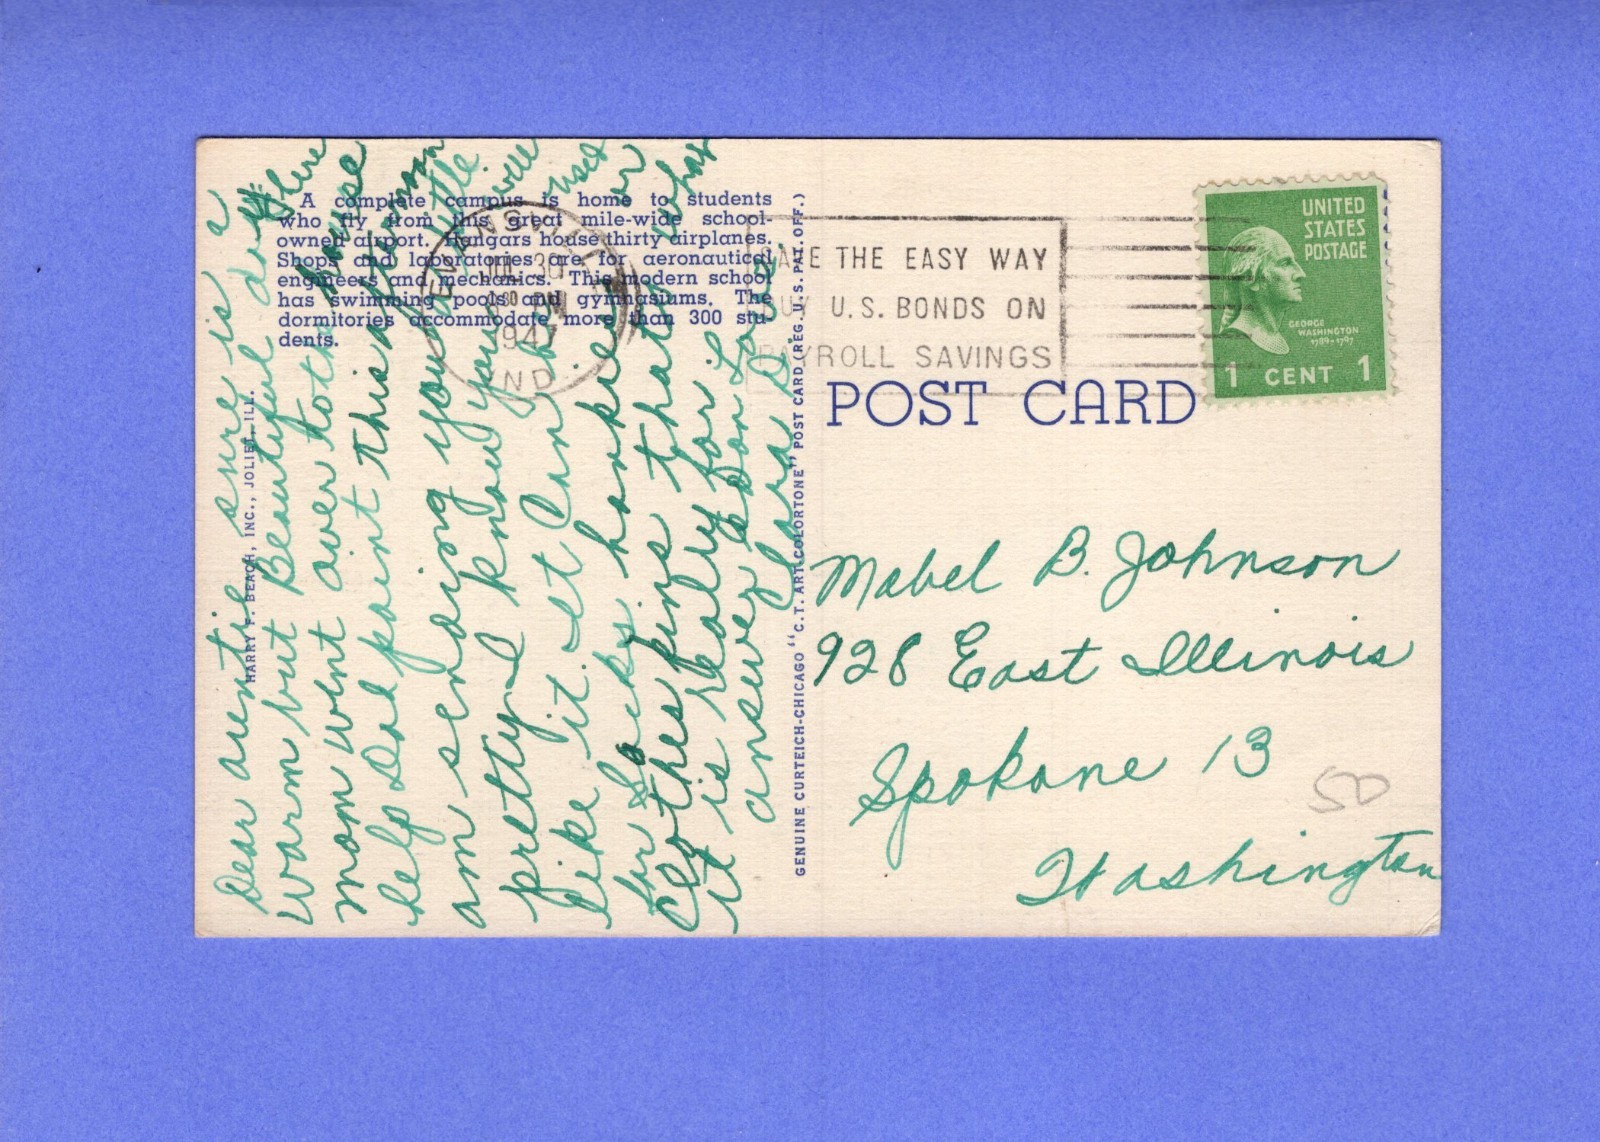 A complete campus is home to students
who fly from this great mile-wide school-
owned airport. Hangars house thirty airplanes.
Shops and laboratories are for aeronautical
engineers and mechanics. This modern school
has swimming pools and gymnasiums. The
dormitories accommodate more than 300 stu-
dents.
HARRY F. BEACH, INC., JOLIET, ILL.
Dear auntie sure is a
warm but Beautiful day here
mom went over to the house
help Dad paint this afternoon
am sending you a little
pretty I know you will
like it. It can be used
for Socks hankies or
Clothes pins thats what
it is really for
answer soon Love
GENUINE CURTEICH-CHICAGO "C.T. ART-COLORTONE" POST CARD (REG. U.S. PAT. OFF.)
EVANSVILLE
JUL 30
PM
1947
IND.
SAVE THE EASY WAY
BUY U.S. BONDS ON
PAYROLL SAVINGS
UNITED
STATES
POSTAGE
GEORGE
WASHINGTON
1789-1797
1 CENT 1
POST CARD
Mabel B. Johnson
928 East Illinois
Spokane 13
Washington
50